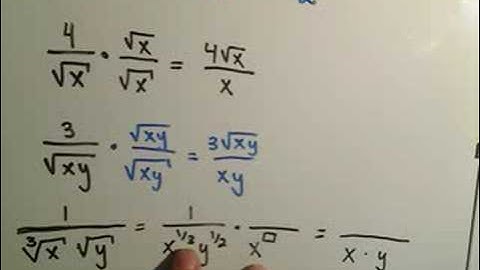 2
4/√x · √x/√x = 4√x/x
3/√xy · √xy/√xy = 3√xy/xy
1/∛x √y = 1/x^1/3 y^1/2 · /x^□ = /x·y